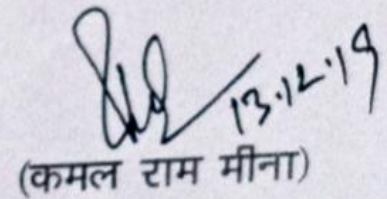 13.12.19
(कमल राम मीना)